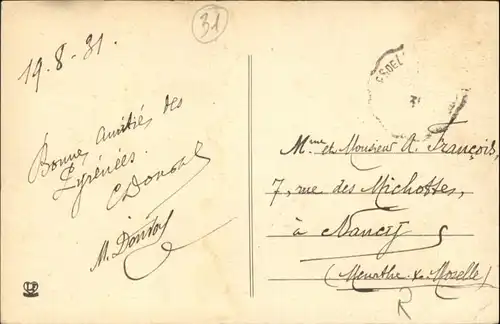 31
19.8-31.
Bonne amitié des
Pyrénées.
Mme et Monsieur A. François,
7, rue des Michottes,
à Nancy
(Meurthe & Moselle)